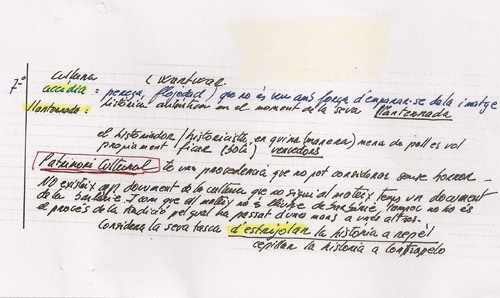 7º
accídia: peresa, flojedad, que no és veu amb força d'emparar-se de la imatge
llanternada: història autèntica en el moment de la seva llanternada
el historiador/historicista, en quina (manera) mena de pell es vol
propiament ficar (Solà) vencedors
Patrimoni Cultural te una provenencia que no pot considerar sense horror.
No existeix cap document de la cultura que no sigui al mateix temps un document
de la barbarie. I com que ell mateix no és lliure de barbarie, tampoc no ho és
el procés de la tradició pel qual ha passat d'unes mans a unes altres.
Considera la seva tasca d'estrijolar la història a repèl
cepillar la historia a contrapelo